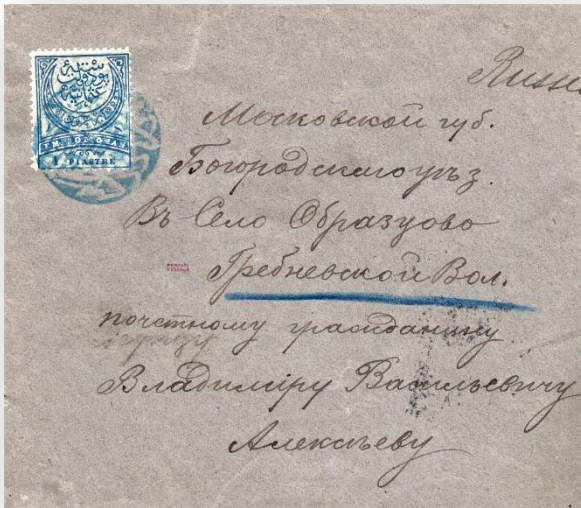 Московской губ.
Богородскаго уѣз.
Въ Село Образцово
Гребневской Вол.
почетному гражданину
Владиміру Васильевичу
Алексѣеву
1 PIASTRE